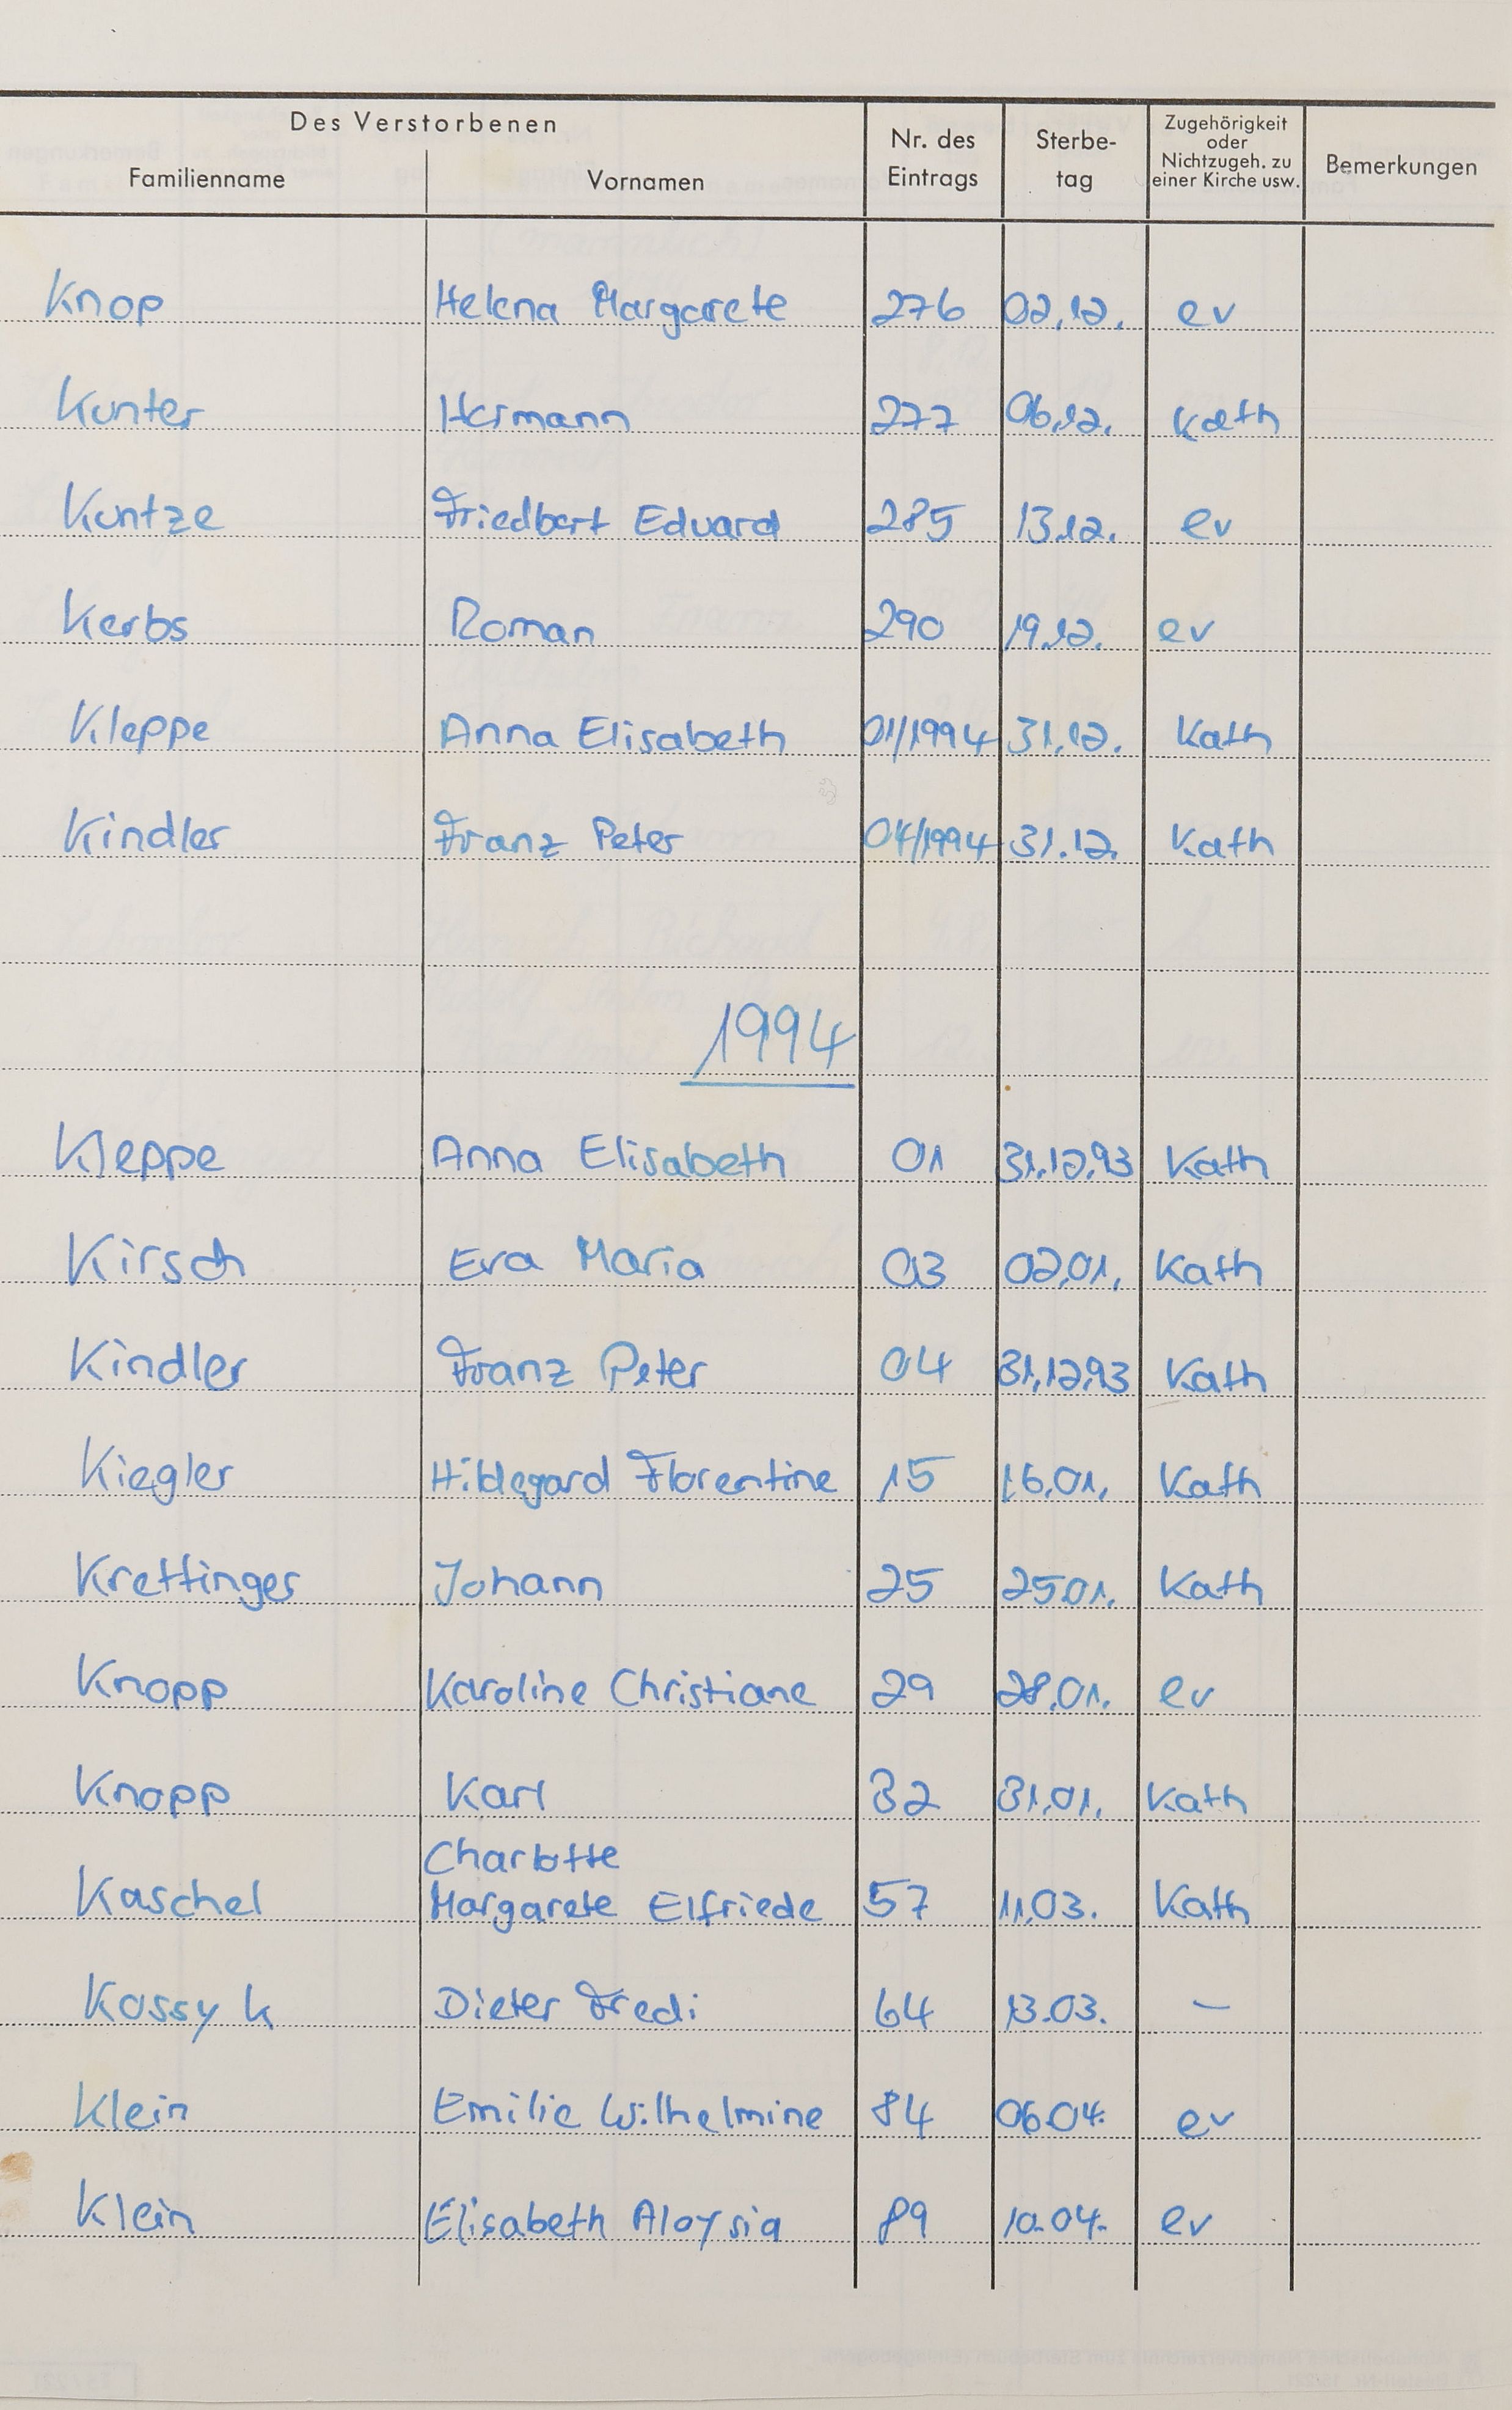 Des Verstorbenen
Familienname Vornamen Nr. des Eintrags Sterbe-tag Zugehörigkeit oder Nichtzugeh. zu einer Kirche usw. Bemerkungen
Knop Helena Margarete 276 02.12. ev
Kunter Hermann 277 06.12. Kath
Kuntze Friedbert Eduard 285 13.12. ev
Kerbs Roman 290 19.12. ev
Kleppe Anna Elisabeth 01/1994 31.12. Kath
Kindler Franz Peter 04/1994 31.12. Kath
1994
Kleppe Anna Elisabeth 01 31.12.93 Kath
Kirsch Eva Maria 03 02.01. Kath
Kindler Franz Peter 04 31.12.93 Kath
Kiegler Hildegard Florentine 15 16.01. Kath
Krettinger Johann 25 25.01. Kath
Knopp Karoline Christiane 29 28.01. ev
Knopp Karl 32 31.01. Kath
Charlotte
Kaschel Margarete Elfriede 57 11.03. Kath
Kossyk Dieter Fredi 64 13.03. –
Klein Emilie Wilhelmine 84 06.04. ev
Klein Elisabeth Aloysia 89 10.04. ev